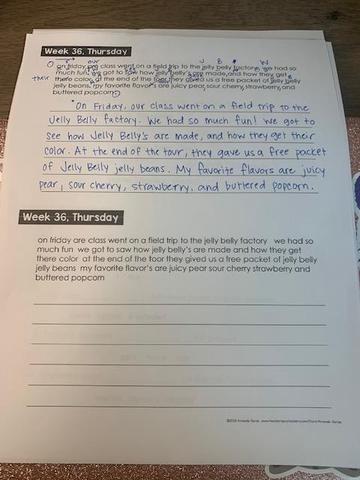 Week 36, Thursday
on friday are class went on a field trip to the jelly belly factory we had so
much fun we got to saw how jelly belly's are made and how they get
there color at the end of the toor they gived us a free packet of jelly belly
jelly beans my favorite flavor's are juicy pear sour cherry strawberry and
buttered popcorn
On Friday, our class went on a field trip to the
Jelly Belly factory. We had so much fun! We got to
see how Jelly Belly's are made, and how they get their
color. At the end of the tour, they gave us a free packet
of Jelly Belly jelly beans. My favorite flavors are juicy
pear, sour cherry, strawberry, and buttered popcorn.
Week 36, Thursday
on friday are class went on a field trip to the jelly belly factory we had so
much fun we got to saw how jelly belly's are made and how they get
there color at the end of the toor they gived us a free packet of jelly belly
jelly beans my favorite flavor's are juicy pear sour cherry strawberry and
buttered popcorn